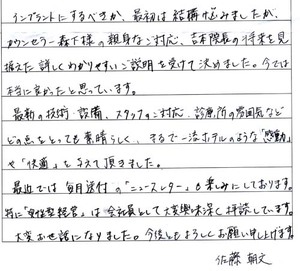 インプラントにするべきか、最初は結構悩みましたが、
カウンセラー森下様の親身なご対応、吉本院長の将来を見
据えた詳しくわかりやすいご説明を受けて決めました。今では
本当に良かったと思っています。
最新の技術・設備、スタッフのご対応、診療所の雰囲気など
どの点をとっても素晴らしく、まるで一流ホテルのような「感動」
や「快適」を与えて頂きました。
最近では毎月送付の「ニュースレター」も楽しみにしております。
特に「 経営」は会社員として大変興味深く拝読しています。
大変お世話になりました。今後ともよろしくお願い申し上げます。
佐藤 朝文